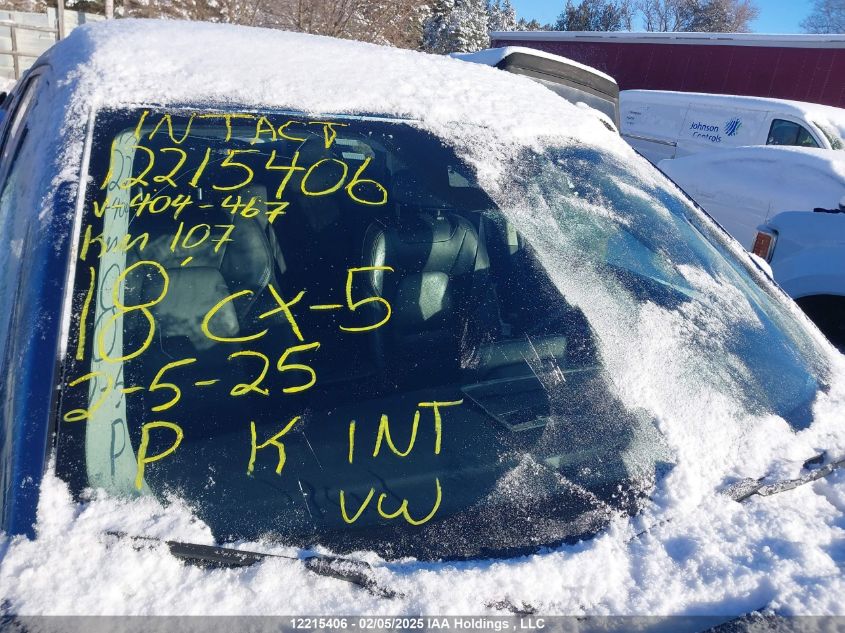 INTACT
12215406
V# 404-467
Km 107
18 CX-5
2-5-25
P K INT
VW
Johnson
Controls
12215406 - 02/05/2025 IAA Holdings , LLC